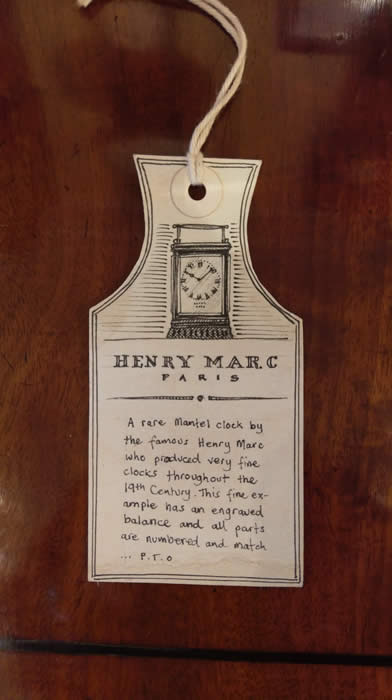 HENRY MARC
PARIS
A rare Mantel clock by
the famous Henry Marc
who produced very fine
clocks throughout the
19th Century. This fine ex-
ample has an engraved
balance and all parts
are numbered and match
... P.T.O